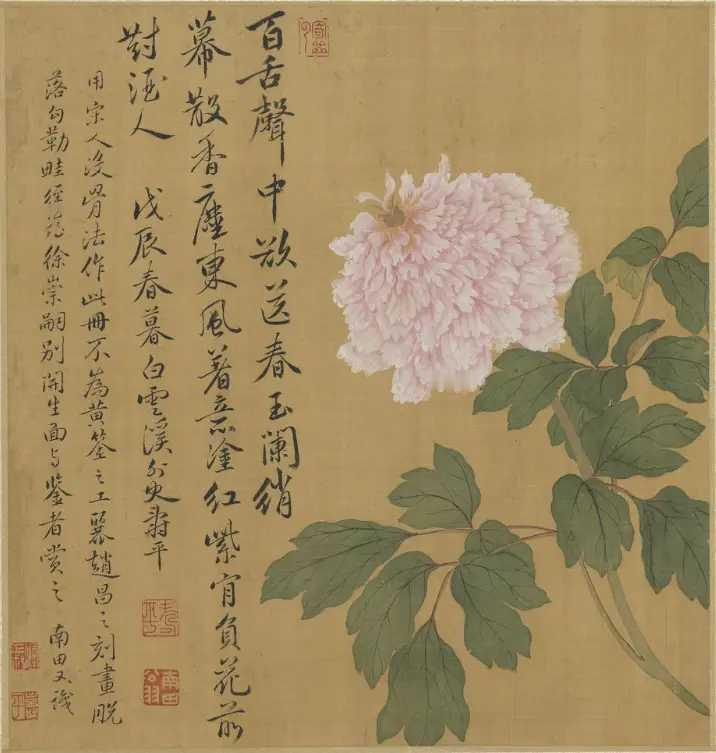 百舌聲中欲送春玉闌綃
幕散香塵東風著意塗紅紫肯負花前
對酒人 戊辰春暮白雲溪外史壽平
用宋人沒骨法作此冊不為黃筌之工麗趙昌之刻畫脫
落勾勒畦徑徐崇嗣別開生面与鑒者賞之 南田又識